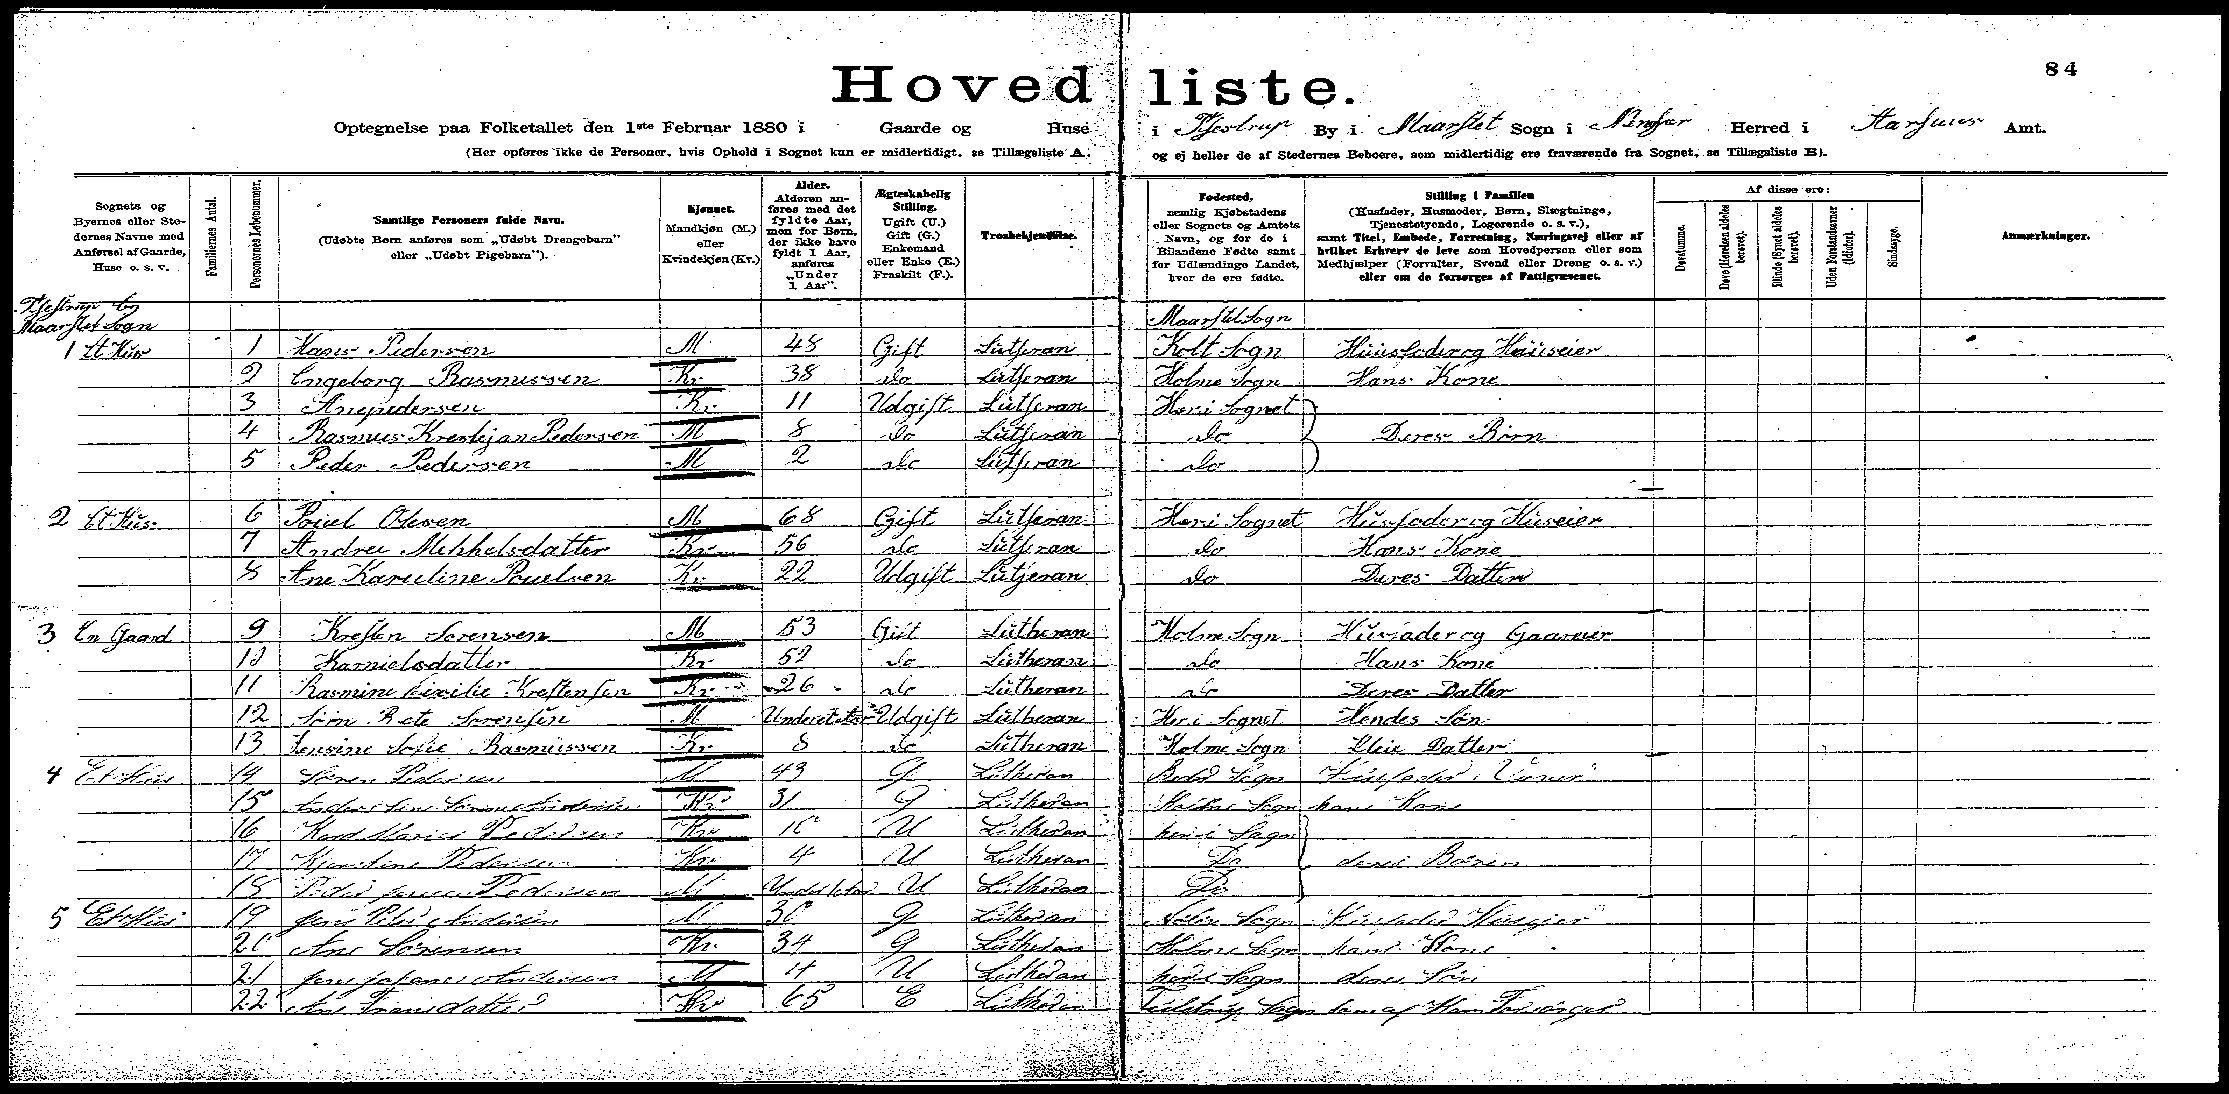 Hovedliste.
84
Optegnelse paa Folketallet den 1ste Februar 1880 i Gaarde og Huse i Tjestrup By i Maarslet Sogn i Ninger Herred i Aarhuus Amt.
(Her opføres ikke de Personer, hvis Ophold i Sognet kun er midlertidigt, se Tillægsliste A. og ej heller de af Stedernes Beboere, som midlertidig ere fraværende fra Sognet, se Tillægsliste B).
Sognets og Byernes eller Stedernes Navne med Anførsel af Gaarde, Huse o. s. v.
Familiernes Antal.
Personernes Løbenummer.
Samtlige Personers fulde Navn. (Udøbte Børn anføres som „Udøbt Drengebarn" eller „Udøbt Pigebarn").
Kjønnet. Mandkjøn (M.) eller Kvindekjøn (Kv.)
Alder. Alderen anføres med det fyldte Aar, men for Børn, der ikke have fyldt 1 Aar, anføres „Under 1 Aar".
Ægteskabelig Stilling. Ugift (U.) Gift (G.) Enkemand eller Enke (E.) Fraskilt (F.).
Troesbekjendelse.
Fødested, nemlig Kjøbstadens eller Sognets og Amtets Navn, og for de i Bilandene Fødte samt for Udlændinge Landet, hvor de ere fødte.
Stilling i Familien (Husfader, Husmoder, Børn, Slægtninge, Tjenestetyende, Logerende o. s. v.), samt Titel, Embede, Forretning, Næringsvej eller af hvilket Erhverv de leve som Hovedperson eller som Medhjælper (Forvalter, Svend eller Dreng o. s. v.) eller om de forsørges af Fattigvæsenet.
Af disse ere:
Døvstumme.
Døve (Hørelsen aldeles berøvet).
Blinde (Synet aldeles berøvet).
Uden Forstandsevner (Idioter).
Sindssyge.
Anmærkninger.
Tjestrup by
Maarslet Sogn Maarslet Sogn
1 Et Hus 1 Hans Pedersen M 48 Gift Lutheran Kolt Sogn Huusfader og Huuseier
2 Engeborg Rasmussen Kv 38 do Lutheran Holme Sogn Hans Kone
3 Anepedersen Kv 11 Udgift Lutheran Her i Sognet
4 Rasmus Krestejan Pedersen M 8 do Lutheran do Deres Børn
5 Peder Pedersen M 2 do Lutheran do
2 Et Hus 6 Pouel Olesen M 68 Gift Lutheran Her i Sognet Husfader og Huseier
7 Andrea Mekkelsdatter Kv 56 do Lutheran do Hans Kone
8 Ane Karueline Pouelsen Kv 22 Udgift Lutheran do Deres Datter
3 En Gaard 9 Kresten Sørensen M 53 Gift Lutheran Holme Sogn Husfader og Gaareier
10 Karnielsdatter Kv 52 do Lutheran do Hans Kone
11 Rasmine Krestensen Kv 26 do Lutheran do Deres Datter
12 Sørn Sørensen M Under et Aar Udgift Lutheran Her i Sognet Hendes Søn
13 Jensine Sofie Rasmussen Kv 8 do Lutheran Holme Sogn Datter
4 Et Hus 14 Søren Pedersen M 43 G Lutheran Sogn Husfader
15 Kv 31 G Lutheran Holme Sogn hans Kone
16 Maries Pedersen Kv 10 U Lutheran her i Sogn
17 Kjerstine Pedersen Kv 4 U Lutheran Do deres Børen
18 Peder Jensen Pedersen M Under 1 Aar U Lutheran Do
5 Et Hus 19 Jens Peter Andersen M 30 G Lutheran Sogn Husfader Huseijer
20 Ane Sørensen Kv 34 G Lutheran Holme Sogn hans Kone
21 Jens Johanes Andersen M 4 U Lutheran her i Sogn deres Søn
22 Ane Fransdatter Kv 65 E Lutheran Tulstrup Sogn som af Ham Forsørget